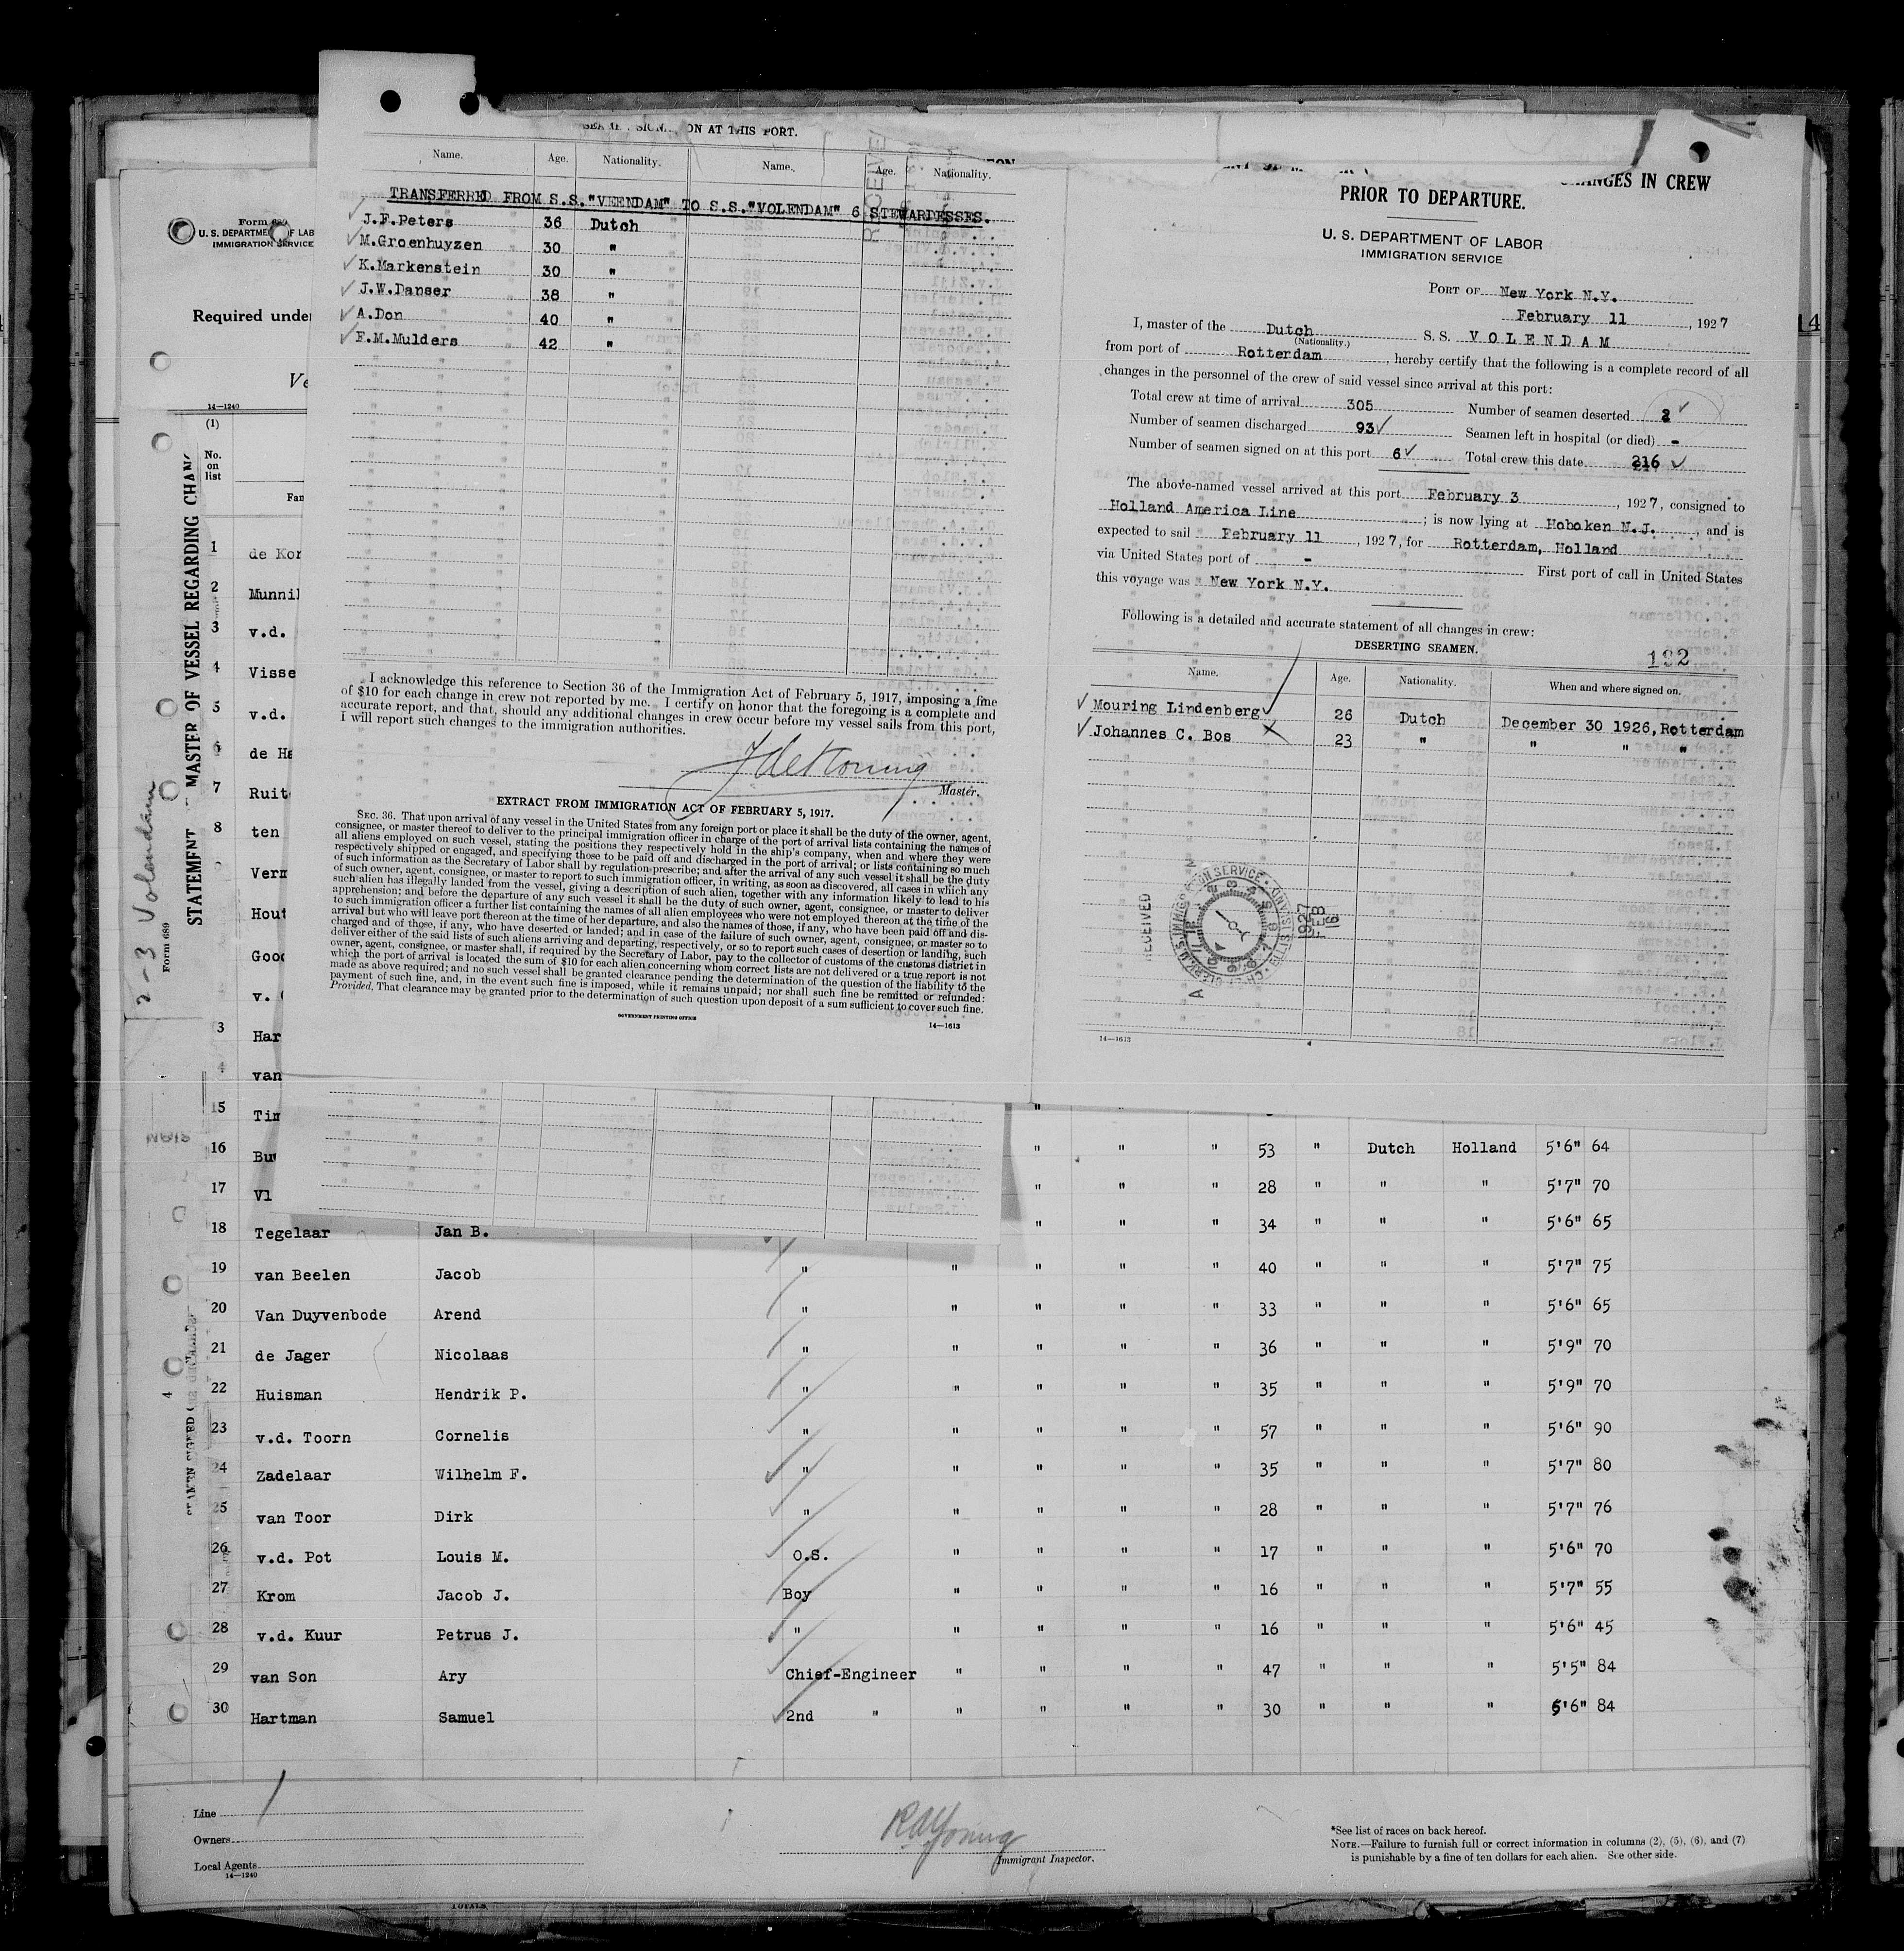 Form 689
U. S. DEPARTMENT OF LAB
IMMIGRATION SERVICE
Required unde
14—1240
(1)
No.
on
list
Fan
STATEMENT MASTER OF VESSEL REGARDING CHANG
Form 689
2-3 Volendam
ON AT THIS PORT.
Name. Age. Nationality. Name. Age. Nationality.
TRANSFERRED FROM S.S."VEENDAM" TO S.S."VOLENDAM" 6 STEWARDESSES.
J.F.Peters 36 Dutch
M.Groenhuyzen 30 "
K.Markenstein 30 "
J.W.Danser 38 "
A.Don 40 "
F.M.Mulders 42 "
I acknowledge this reference to Section 36 of the Immigration Act of February 5, 1917, imposing a fine
of $10 for each change in crew not reported by me. I certify on honor that the foregoing is a complete and
accurate report, and that, should any additional changes in crew occur before my vessel sails from this port,
I will report such changes to the immigration authorities.
JdeKoning
Master.
EXTRACT FROM IMMIGRATION ACT OF FEBRUARY 5, 1917.
SEC. 36. That upon arrival of any vessel in the United States from any foreign port or place it shall be the duty of the owner, agent,
consignee, or master thereof to deliver to the principal immigration officer in charge of the port of arrival lists containing the names of
all aliens employed on such vessel, stating the positions they respectively hold in the ship's company, when and where they were
respectively shipped or engaged, and specifying those to be paid off and discharged in the port of arrival; or lists containing so much
of such information as the Secretary of Labor shall by regulation prescribe; and after the arrival of any such vessel it shall be the duty
of such owner, agent, consignee, or master to report to such immigration officer, in writing, as soon as discovered, all cases in which any
such alien has illegally landed from the vessel, giving a description of such alien, together with any information likely to lead to his
apprehension; and before the departure of any such vessel it shall be the duty of such owner, agent, consignee, or master to deliver
to such immigration officer a further list containing the names of all alien employees who were not employed thereon at the time of the
arrival but who will leave port thereon at the time of her departure, and also the names of those, if any, who have been paid off and dis-
charged and of those, if any, who have deserted or landed; and in case of the failure of such owner, agent, consignee, or master so to
deliver either of the said lists of such aliens arriving and departing, respectively, or so to report such cases of desertion or landing, such
owner, agent, consignee, or master shall, if required by the Secretary of Labor, pay to the collector of customs of the customs district in
which the port of arrival is located the sum of $10 for each alien concerning whom correct lists are not delivered or a true report is not
made as above required; and no such vessel shall be granted clearance pending the determination of the question of the liability to the
payment of such fine, and, in the event such fine is imposed, while it remains unpaid; nor shall such fine be remitted or refunded:
Provided, That clearance may be granted prior to the determination of such question upon deposit of a sum sufficient to cover such fine.
GOVERNMENT PRINTING OFFICE
14—1613
CHANGES IN CREW
PRIOR TO DEPARTURE.
U. S. DEPARTMENT OF LABOR
IMMIGRATION SERVICE
PORT OF New York N.Y.
February 11, 1927
I, master of the Dutch S. S. VOLENDAM
(Nationality.)
from port of Rotterdam, hereby certify that the following is a complete record of all
changes in the personnel of the crew of said vessel since arrival at this port:
Total crew at time of arrival 305 Number of seamen deserted 2
Number of seamen discharged 93 Seamen left in hospital (or died) -
Number of seamen signed on at this port 6 Total crew this date 216
The above-named vessel arrived at this port February 3, 1927, consigned to
Holland America Line; is now lying at Hoboken N.J., and is
expected to sail February 11, 1927, for Rotterdam, Holland
via United States port of - First port of call in United States
this voyage was New York N.Y.
Following is a detailed and accurate statement of all changes in crew:
DESERTING SEAMEN. 192
Name. Age. Nationality. When and where signed on.
Mouring Lindenberg 26 Dutch December 30 1926, Rotterdam
Johannes C. Bos 23 " " " "
RECEIVED
1927
FEB
16
14—1613
1 de Kor
2 Munnil
3 v.d.
4 Visse
5 v.d.
6 de Ha
7 Ruit
8 ten
Verm
Hout
Good
v.
3 Har
4 van
15 Tim
16 Bu " " " 53 " Dutch Holland 5'6" 64
17 Vl " " " 28 " " " 5'7" 70
18 Tegelaar Jan B. " " " 34 " " " 5'6" 65
19 van Beelen Jacob " " " " " 40 " " " 5'7" 75
20 Van Duyvenbode Arend " " " " " 33 " " " 5'6" 65
21 de Jager Nicolaas " " " " " 36 " " " 5'9" 70
22 Huisman Hendrik P. " " " " " 35 " " " 5'9" 70
23 v.d. Toorn Cornelis " " " " " 57 " " " 5'6" 90
24 Zadelaar Wilhelm F. " " " " " 35 " " " 5'7" 80
25 van Toor Dirk " " " " " 28 " " " 5'7" 76
26 v.d. Pot Louis M. O.S. " " " " 17 " " " 5'6" 70
27 Krom Jacob J. Boy " " " " 16 " " " 5'7" 55
28 v.d. Kuur Petrus J. " " " " " 16 " " " 5'6" 45
29 van Son Ary Chief-Engineer " " " " 47 " " " 5'5" 84
30 Hartman Samuel 2nd " " " " " 30 " " " 5'6" 84
Line
Owners
Local Agents
14—1240
Immigrant Inspector.
*See list of races on back hereof.
NOTE.—Failure to furnish full or correct information in columns (2), (5), (6), and (7)
is punishable by a fine of ten dollars for each alien. See other side.